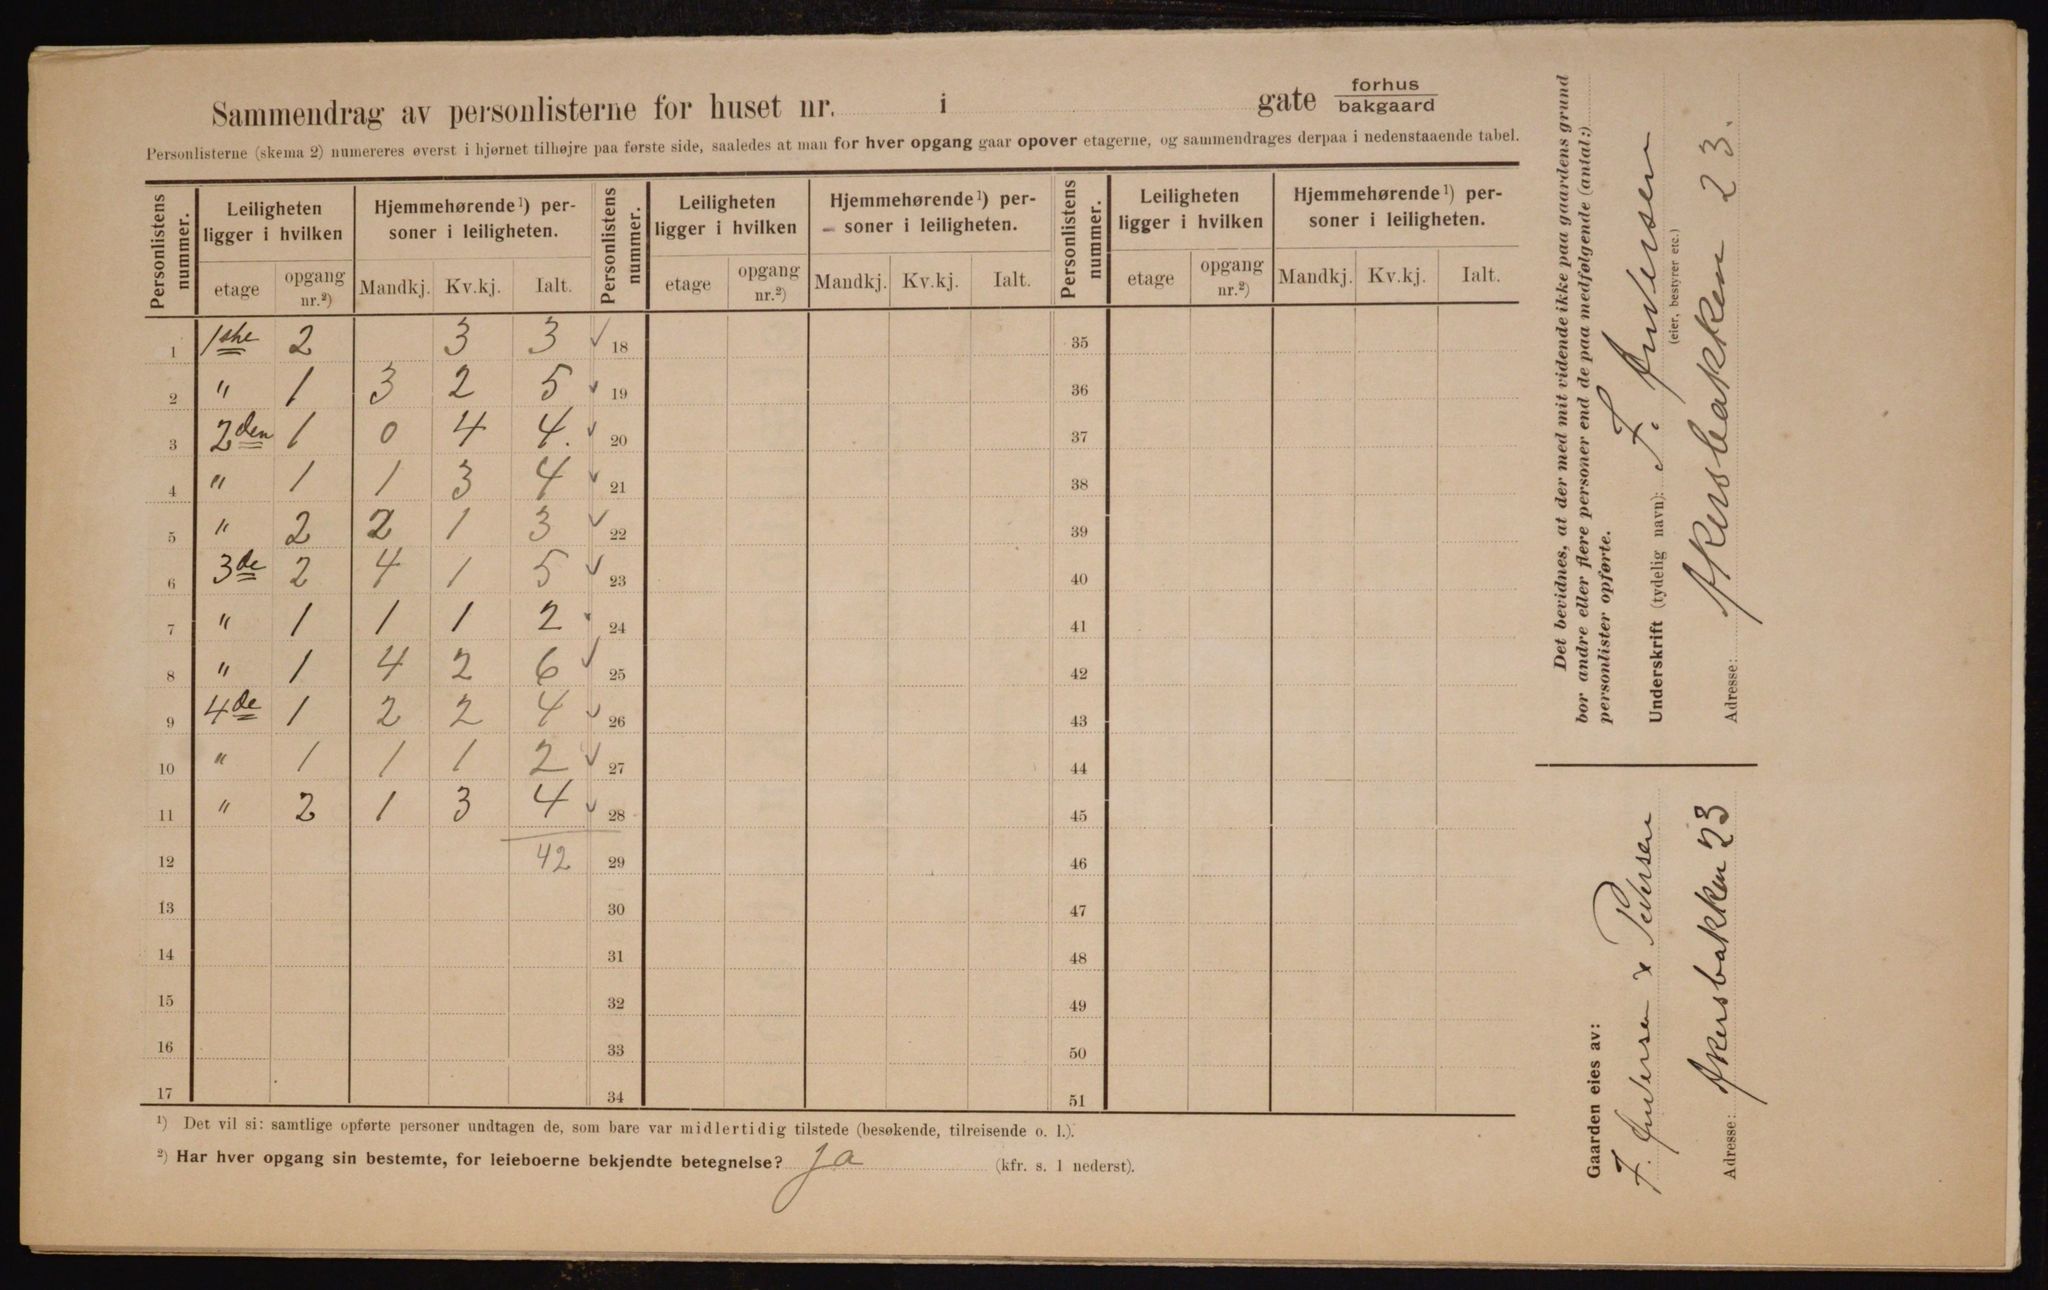 Sammendrag av personlisterne for huset nr. i gate forhus bakgaard
Personlisterne (skema 2) numereres øverst i hjørnet tilhøjre paa første side, saaledes at man for hver opgang gaar opover etagerne, og sammendrages derpaa i nedenstaaende tabel.
Personlistens nummer. Leiligheten ligger i hvilken Hjemmehørende¹) personer i leiligheten. Personlistens nummer. Leiligheten ligger i hvilken Hjemmehørende¹) personer i leiligheten. Personlistens nummer. Leiligheten ligger i hvilken Hjemmehørende¹) personer i leiligheten.
etage opgang nr.²) Mandkj. Kv.kj. Ialt. etage opgang nr.²) Mandkj. Kv.kj. Ialt. etage opgang nr.²) Mandkj. Kv.kj. Ialt.
1 1ste 2 3 3 ✓ 18 35
2 " 1 3 2 5 ✓ 19 36
3 2den 1 0 4 4. ✓ 20 37
4 " 1 1 3 4 ✓ 21 38
5 " 2 2 1 3 ✓ 22 39
6 3de 2 4 1 5 ✓ 23 40
7 " 1 1 1 2 24 41
8 " 1 4 2 6 ✓ 25 42
9 4de 1 2 2 4 ✓ 26 43
10 " 1 1 1 2 ✓ 27 44
11 " 2 1 3 4 ✓ 28 45
12 42 29 46
13 30 47
14 31 48
15 32 49
16 33 50
17 34 51
¹) Det vil si: samtlige opførte personer undtagen de, som bare var midlertidig tilstede (besøkende, tilreisende o. l.).
²) Har hver opgang sin bestemte, for leieboerne bekjendte betegnelse? Ja (kfr. s. 1 nederst).
Det bevidnes, at der med mit vidende ikke paa gaardens grund
bor andre eller flere personer end de paa medfølgende (antal:)
personlister opførte.
Underskrift (tydelig navn): F. Andersen
(eier, bestyrer etc.)
Adresse: Akersbakken 23.
Gaarden eies av:
F. Andersen & Pedersen
Adresse: Akersbakken 23